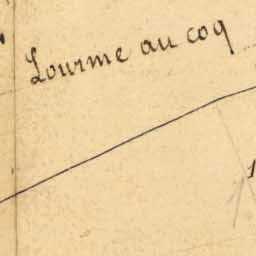 Lourme au coq